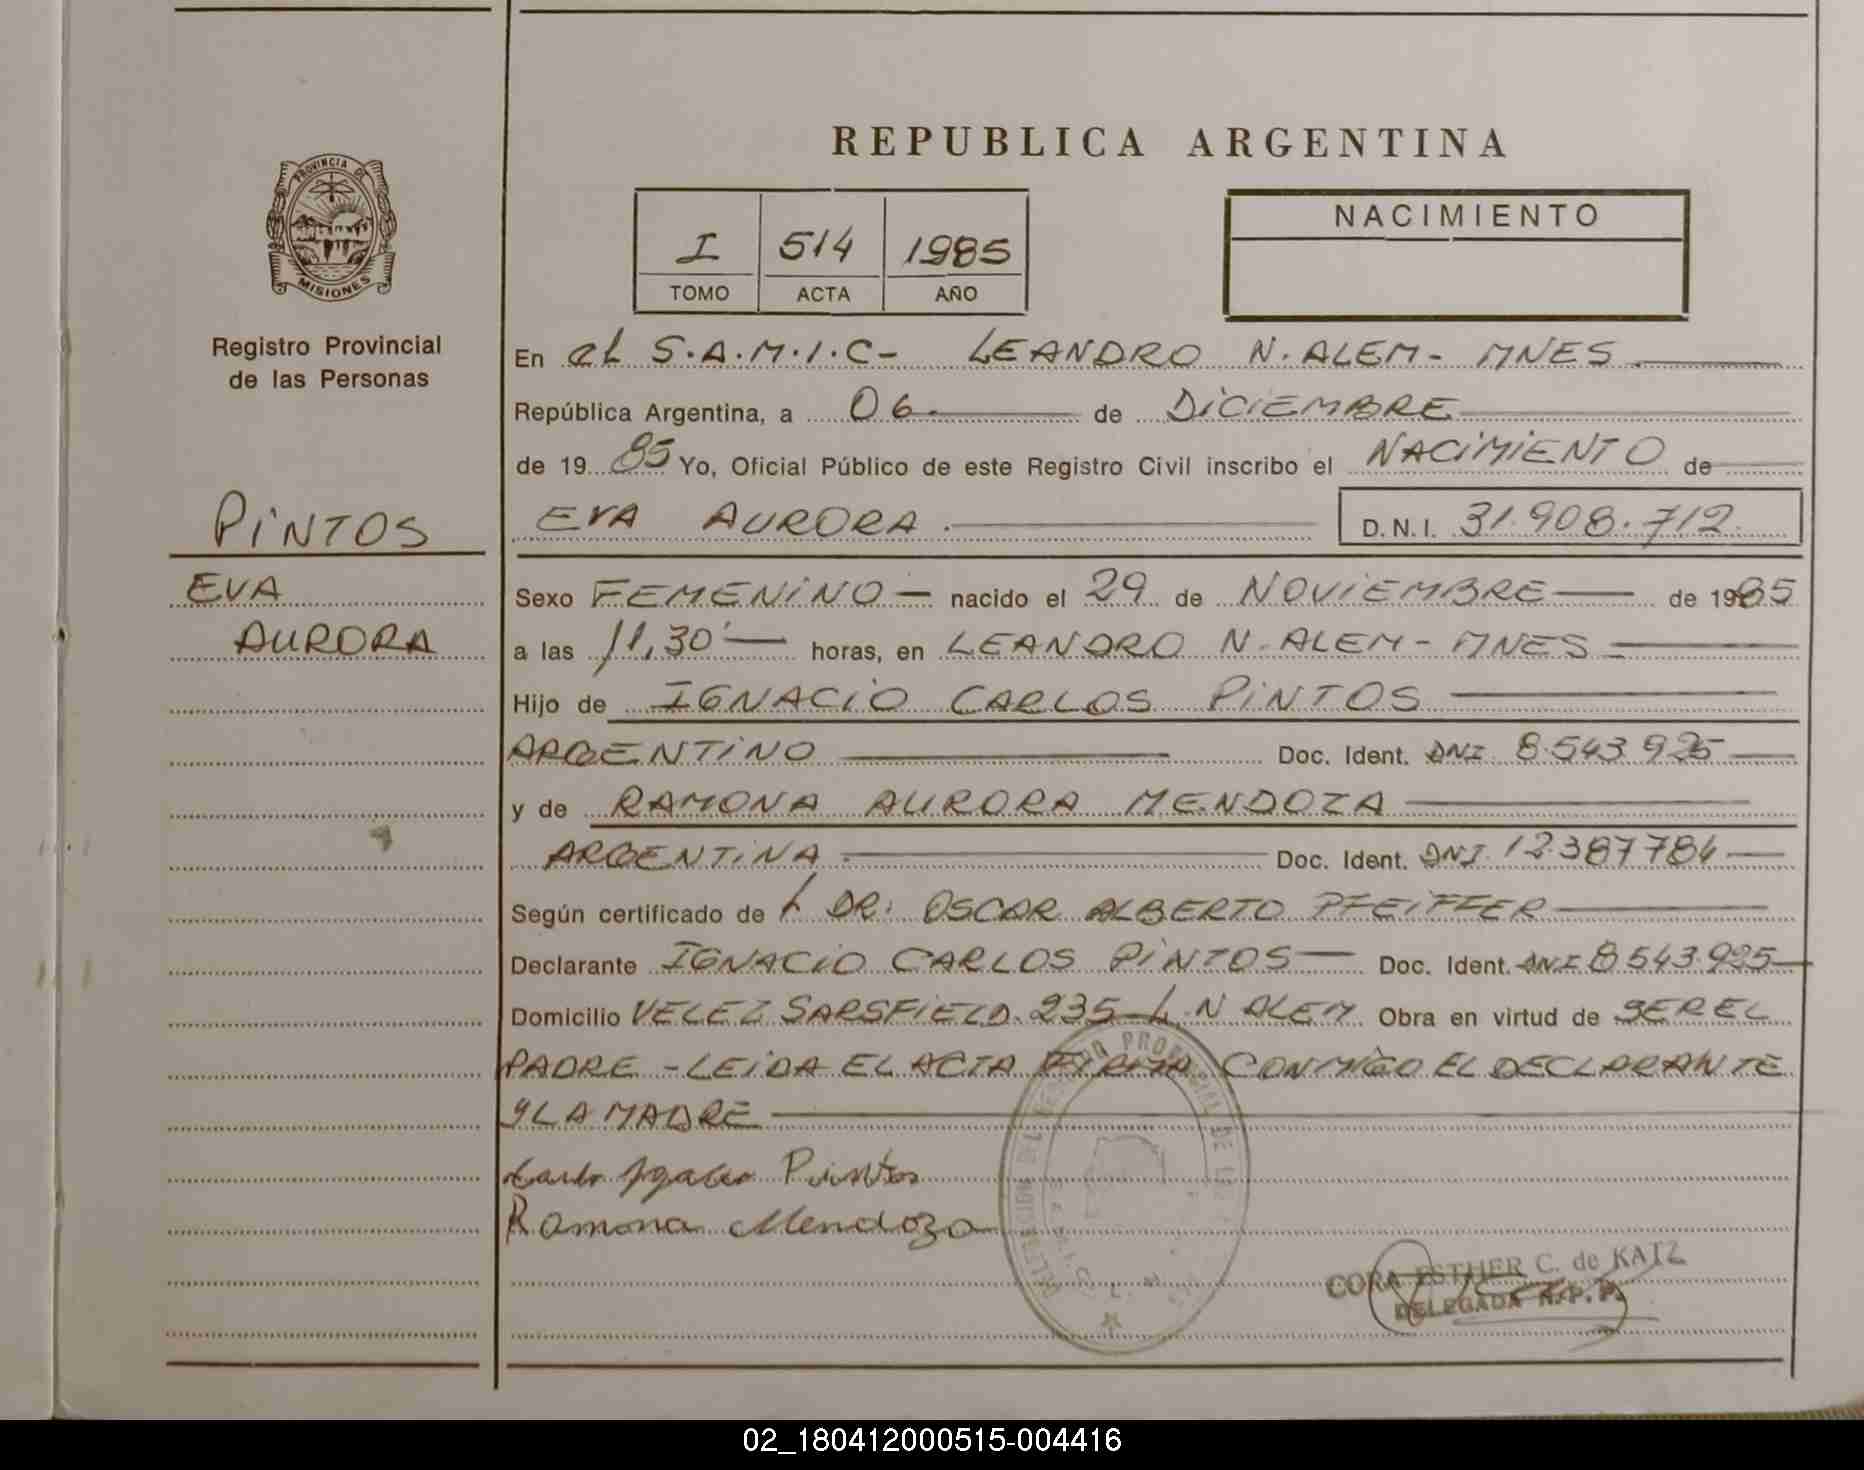 REPUBLICA ARGENTINA
PROVINCIA DE
MISIONES
Registro Provincial
de las Personas
PINTOS
EVA
AURORA
I 514 1985
TOMO ACTA AÑO
NACIMIENTO
En el S.A.M.I.C- LEANDRO N. ALEM- MNES.
República Argentina, a 06. de DICIEMBRE
de 19 85 Yo, Oficial Público de este Registro Civil inscribo el NACIMIENTO de
EVA AURORA. D.N.I. 31.908.712.
Sexo FEMENINO nacido el 29 de NOVIEMBRE de 1985
a las 11,30' horas, en LEANDRO N. ALEM - MNES
Hijo de IGNACIO CARLOS PINTOS
ARGENTINO Doc. Ident. DNI 8.543.925
y de RAMONA AURORA MENDOZA
ARGENTINA. Doc. Ident. DNI. 12.387784
Según certificado de L DR. OSCAR ALBERTO PFEIFFER
Declarante IGNACIO CARLOS PINTOS Doc. Ident. DNI 8543.925
Domicilio VELEZ SARSFIELD. 235 L.N ALEM Obra en virtud de SER EL
PADRE - LEIDA EL ACTA FIRMA CONMIGO EL DECLARANTE
Y LA MADRE
Pintos
Ramona Mendoza
CORA ESTHER C. de KATZ
DELEGADA R.P.P.
02_180412000515-004416